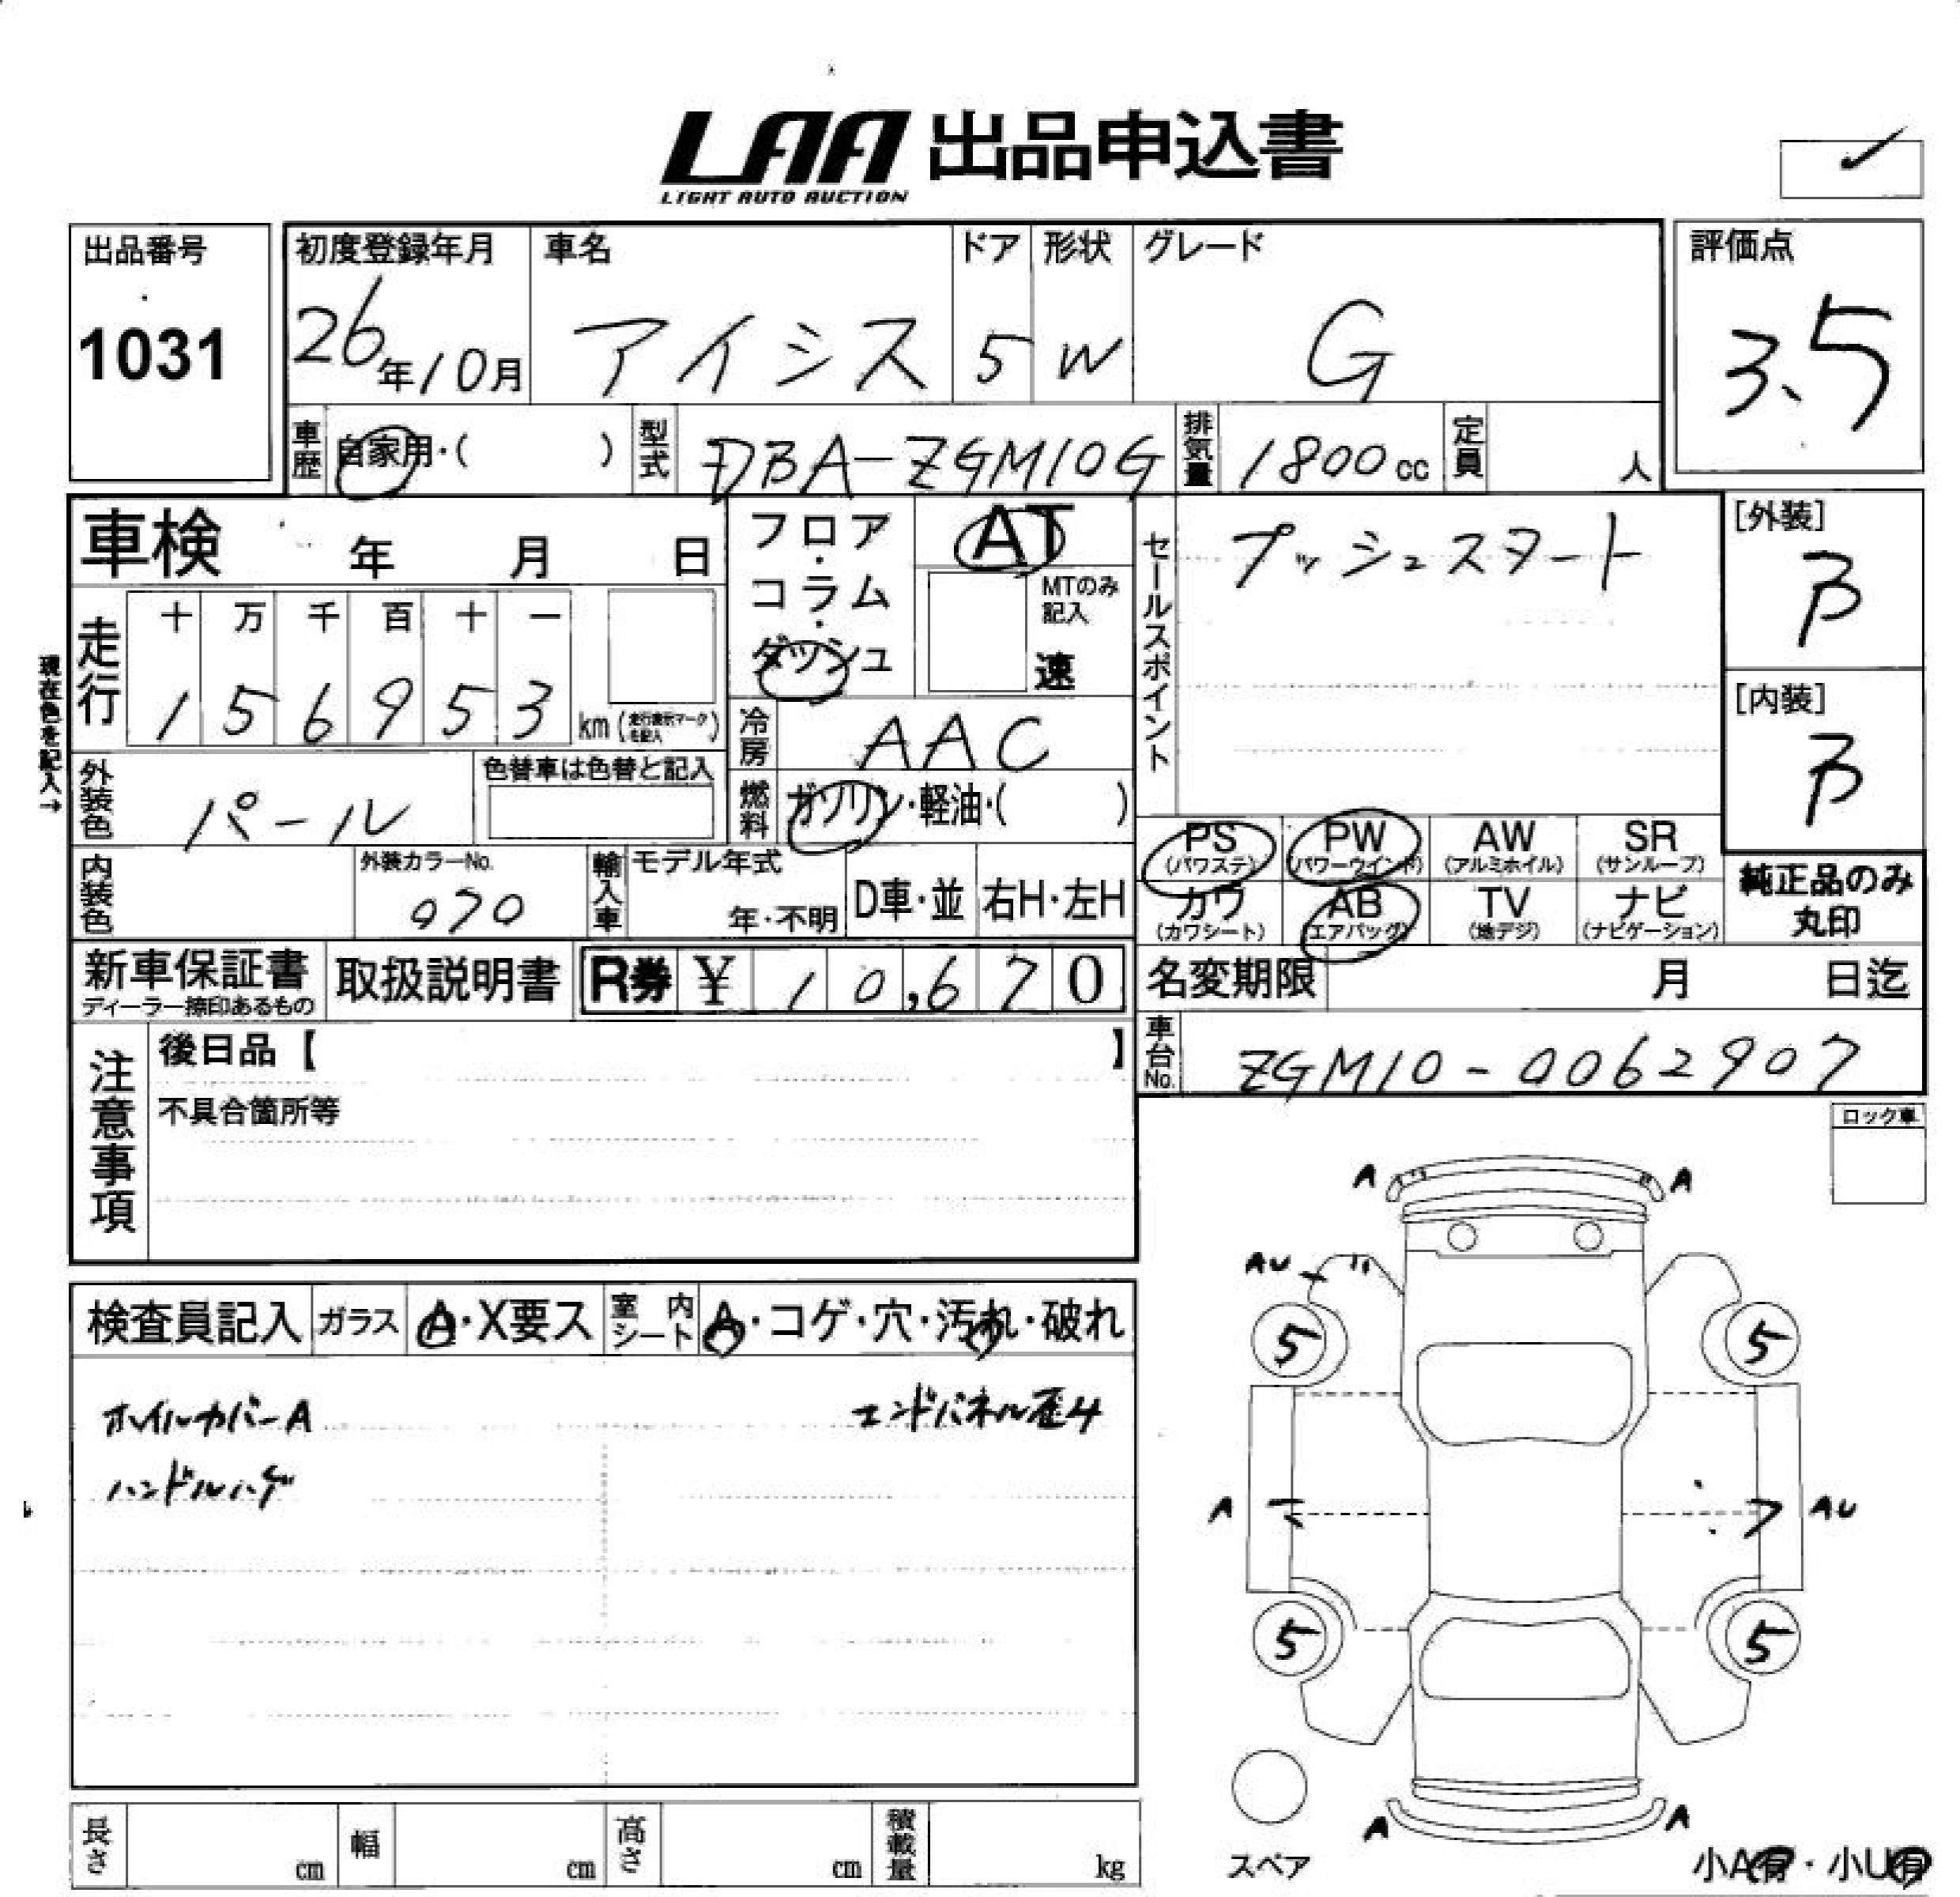 LAA 出品申込書
LIGHT AUTO AUCTION
出品番号
1031
初度登録年月
26年10月
車名
アイシス
ドア
5
形状
W
グレード
G
評価点
3.5
車歴
自家用・( )
型式
DBA-ZGM10G
排気量
1800cc
定員
人
車検 年 月 日
走行
十 万 千 百 十 一
1 5 6 9 5 3 km(走行表示マークを記入)
現在色を記入→
フロア・コラム・ダッシュ
AT
MTのみ記入
速
冷房
AAC
燃料
ガソリン・軽油・( )
セールスポイント
プッシュスタート
[外装]
B
[内装]
B
外装色
パール
色替車は色替と記入
内装色
外装カラーNo.
070
輸入車
モデル年式
年・不明
D車・並
右H・左H
PS (パワステ)
PW (パワーウインド)
AW (アルミホイル)
SR (サンルーフ)
カワ (カワシート)
AB (エアバッグ)
TV (地デジ)
ナビ (ナビゲーション)
純正品のみ
丸印
新車保証書
ディーラー捺印あるもの
取扱説明書
R券 ¥ 10,670
名変期限 月 日迄
車台No.
ZGM10-0062907
注意事項
後日品【 】
不具合箇所等
ロック車
検査員記入
ガラス
A・X要ス
室内シート
A・コゲ・穴・汚れ・破れ
ホイルカバーA
エンドパネル歪4
ハンドルハゲ
A A
AU
5 5
A AU
5 5
A A
スペア
小A有・小U有
長さ cm
幅 cm
高さ cm
積載量 kg